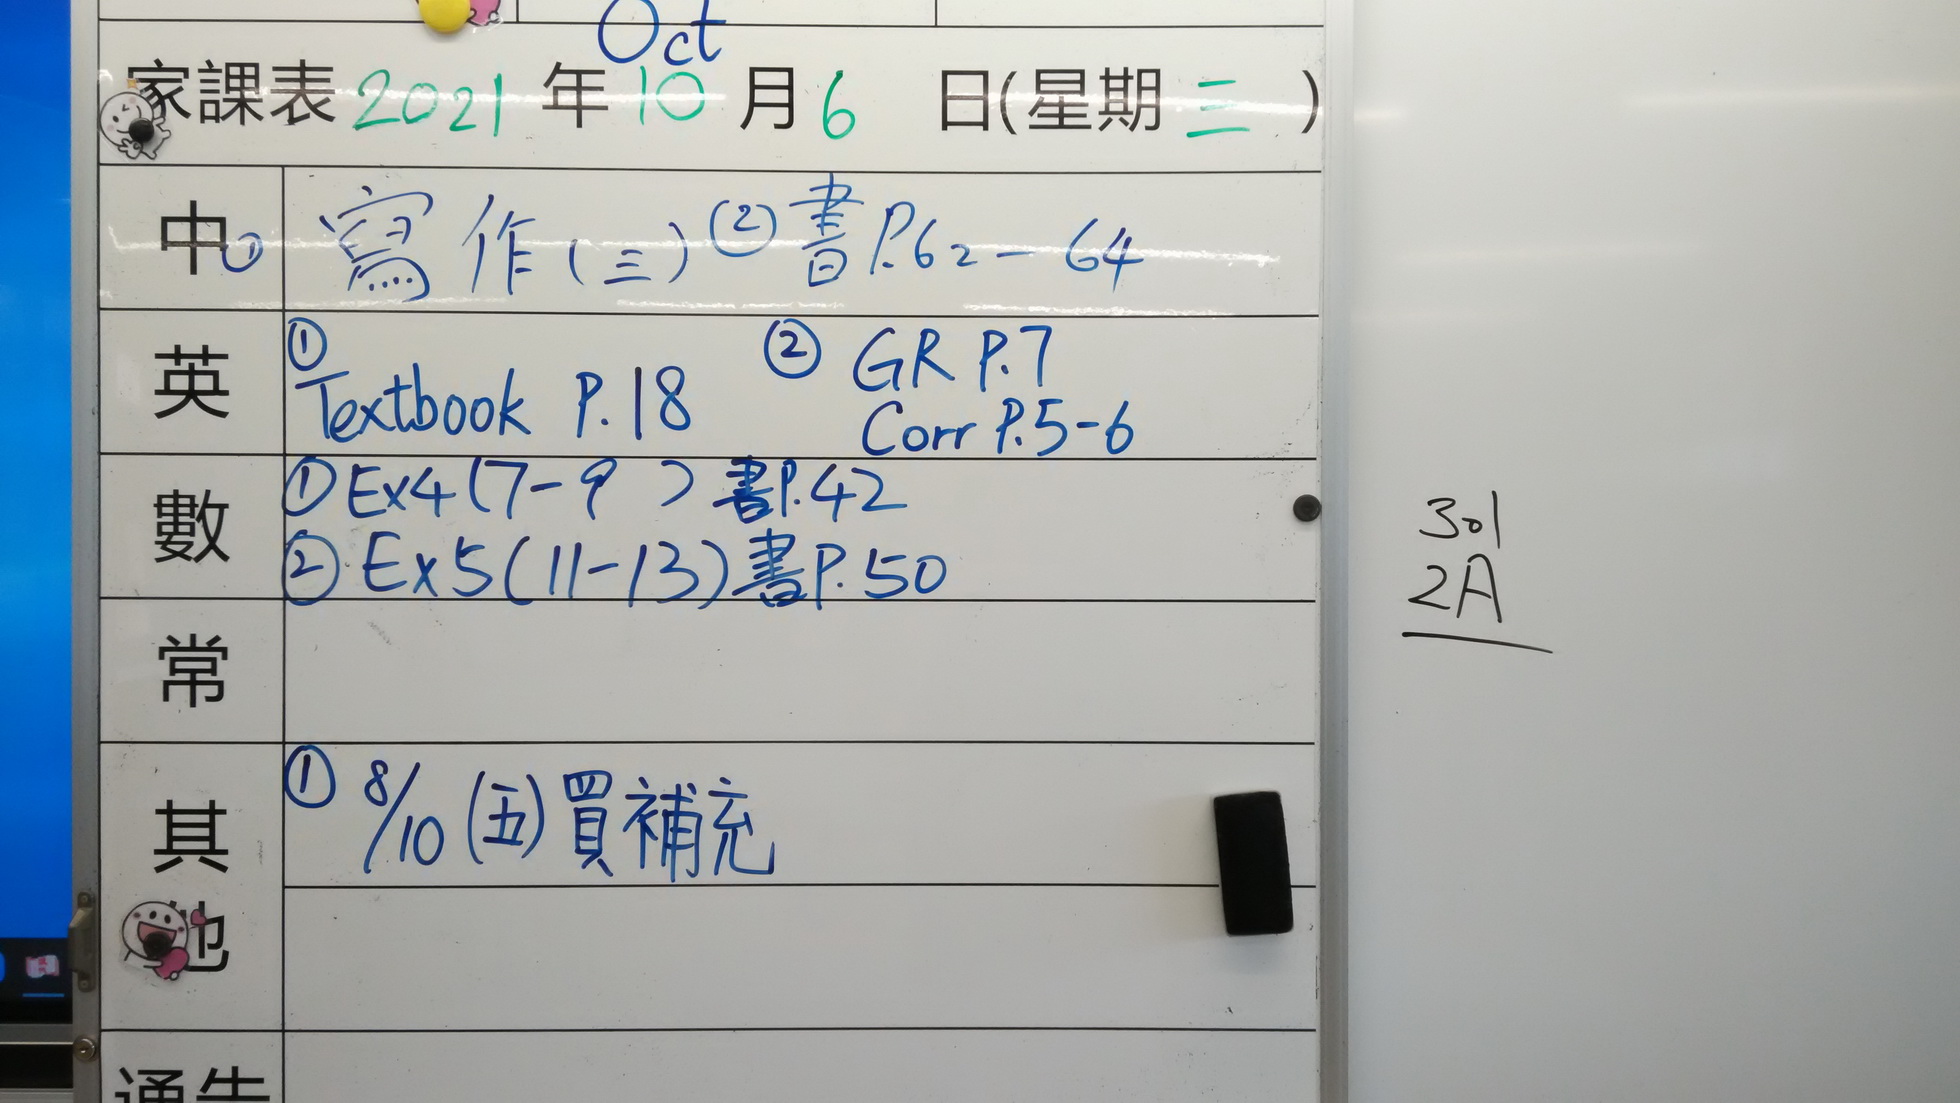 Oct
家課表 2021 年 10 月 6 日(星期 三 )
中 ① 寫作(三) ② 書P.62-64
英 ① Textbook P.18 ② GR P.7
Corr P.5-6
數 ① Ex4 (7-9 ) 書P.42
② Ex5 (11-13) 書P.50
常
其他 ① 8/10 (五) 買補充
通告
301
2A